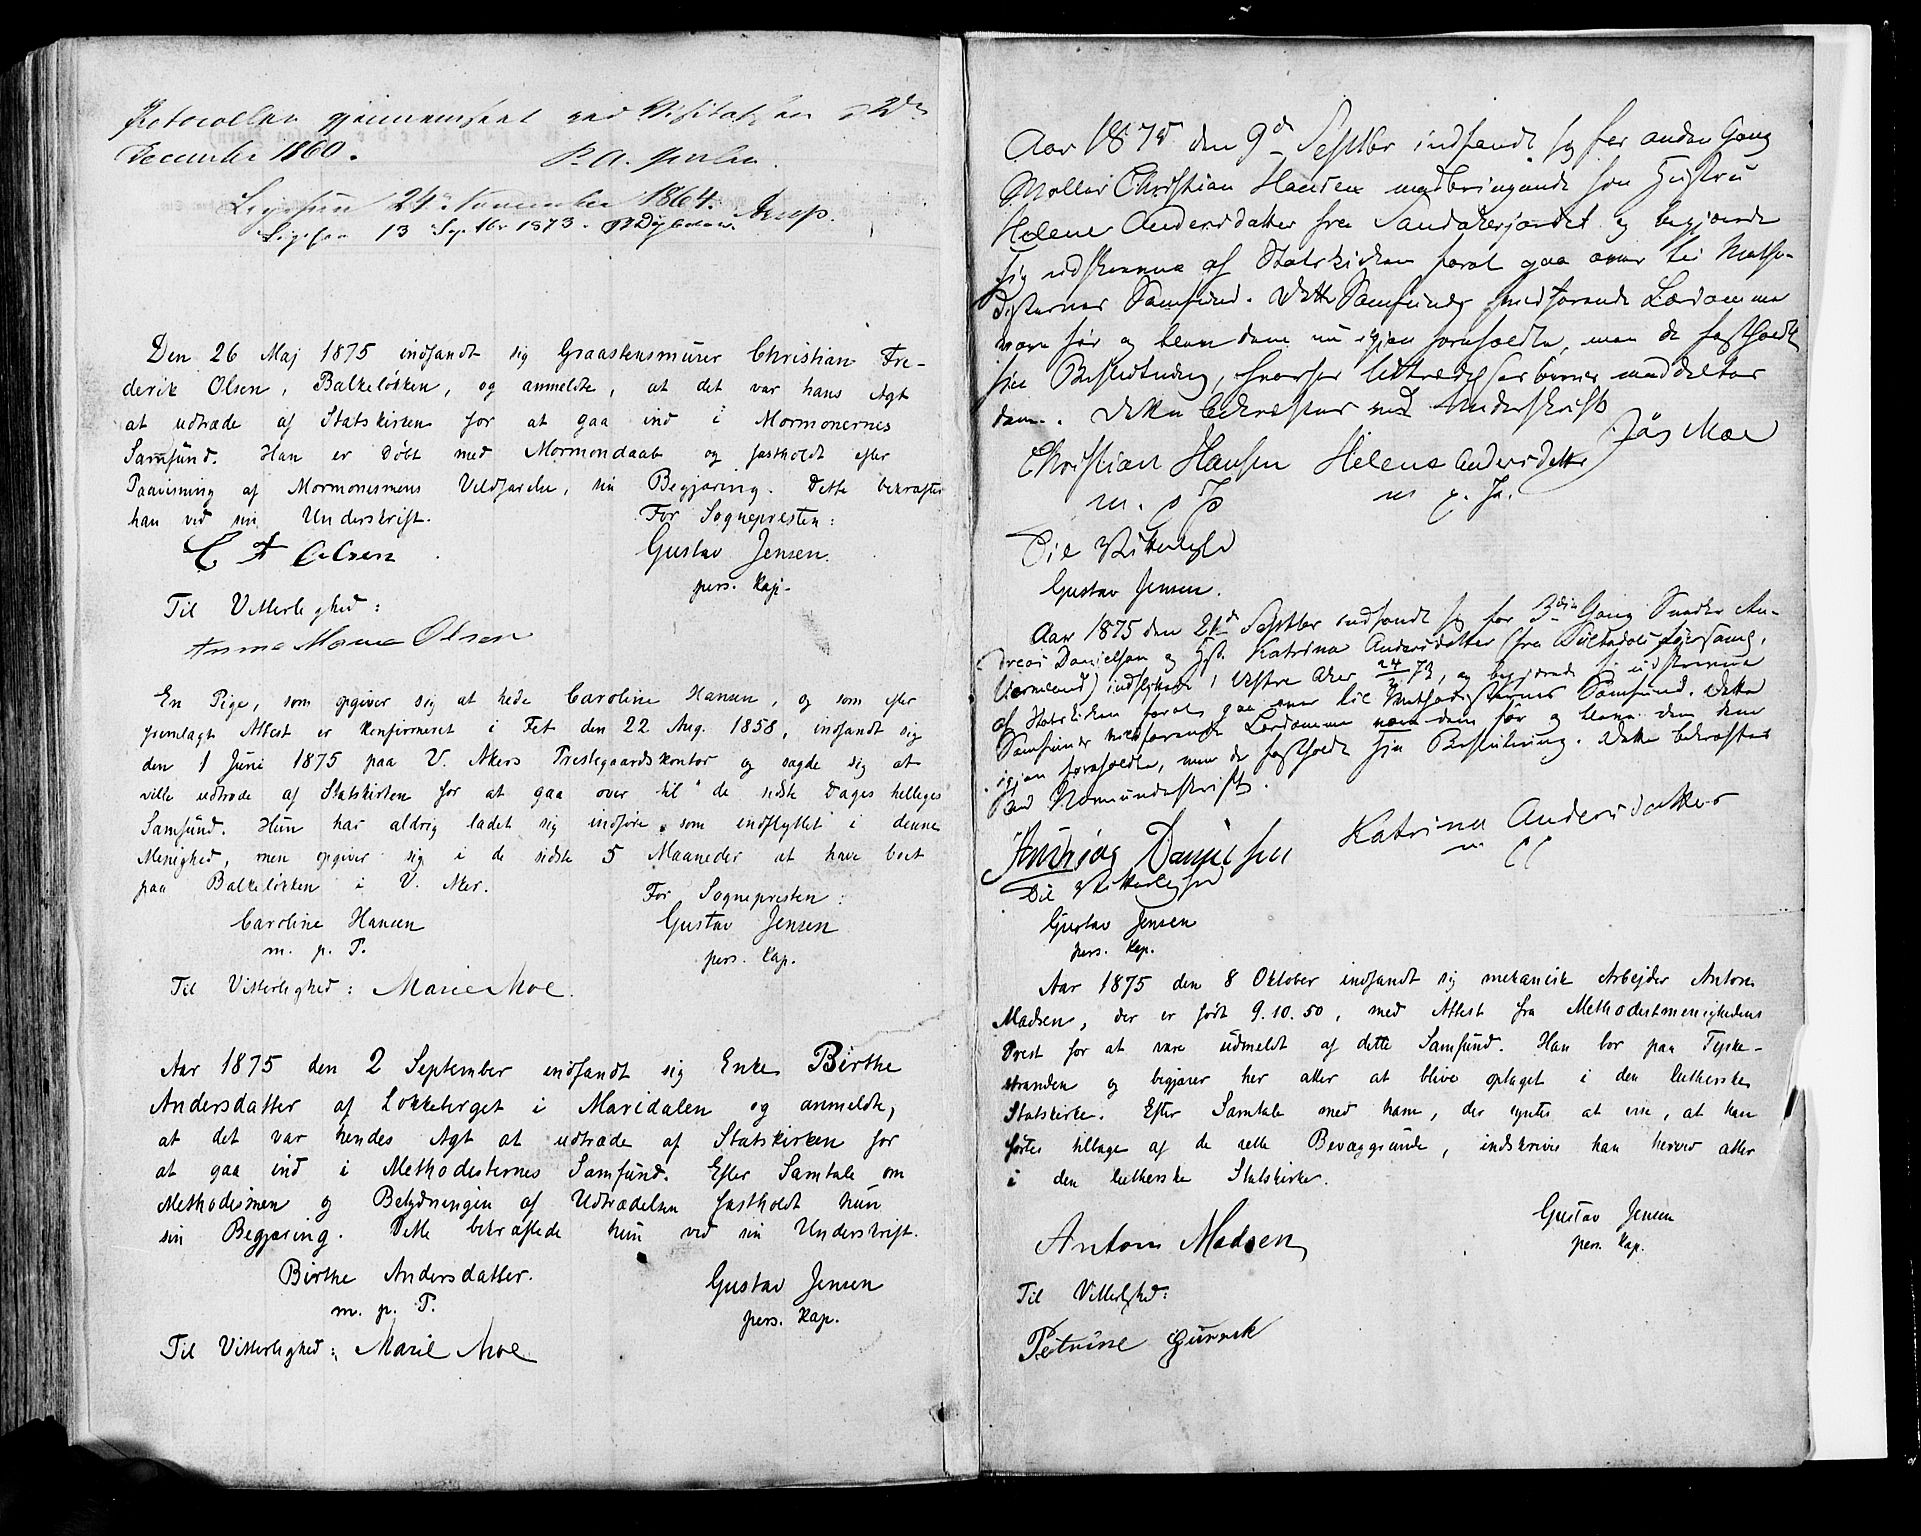 Protocollen gjennemseet ved Visitatsen d 2den
December 1860. P. A. Jensen.
Ligesaa 24 November 1864. Arup.
Ligesaa 13 Septbr 1873.
Den 26 Maj 1875 indfandt sig Graastensmurer Christian Fre-
derik Olsen, Balkeløkken, og anmeldte, at det var hans Agt
at udtræde af Statskirken for at gaa ind i Mormonernes
Samfund. Han er døbt med Mormondaab og fastholdt efter
Paavisning af Mormonesmens Vildfarelse, sin Begjæring. Dette bekræfter
han ved sin Underskrift. For Sognepresten:
C F Olsen Gustav Jensen.
pers. Kap.
Til Vitterlighed:
Anna Marie Olsen
En Pige, som opgiver sig at hede Caroline Hansen, og som efter
fremlagt Attest er konfirmeret i Fet den 22 Aug. 1858, indfandt sig
den 1 Juni 1875 paa V. Akers Prestegaardskontor og sagde sig at
ville udtræde af Statskirken for at gaa over til "de sidste Dages helliges
Samfund. Hun har aldrig ladet sig indføre som indflyttet i denne
Menighed, men opgiver sig i de sidste 5 Maaneder at have boet
paa Balkeløkken i V. Aker. For Sognepresten:
Caroline Hansen Gustav Jensen
m. p. P. pers. Kap.
Til Vitterlighed: Marie Moe.
Aar 1875 den 2 September indfandt sig Enke Birthe
Andersdatter af Lokkeberget i Maridalen og anmeldte,
at det var hendes Agt at udtræde af Statskirken for
at gaa ind i Methodisternes Samfund. Efter Samtale om
Methodismen og Betydningen af Udtrædelsen fastholdt hun
sin Begjæring. Dette bekræftede hun ved sin Underskrift.
Birthe Andersdatter. Gustav Jensen
m. p. P. pers. Kap.
Til Vitterlighed: Marie Moe
Aar 1875 den 9de Septbr indfandt sig for anden Gang
Møller Christian Hansen medbringende sin Hustru
Helene Andersdatter fra Sandakerjordet og begjærede
sig udskrevne af Statskirken forat gaa over til Metho-
disternes Samfund. Dette Samfunds medførende Lærdomme
vare før og bleve dem nu igjen foreholdte, men de fastholdt
sin Beslutning, hvorfor Udtrædelsesbevis meddeltes
dem. Dette bekræftes med Underskrift
Jørg Moe
Christian Hansen Helene Andersdatter
m. p. P. m. p. P.
Til Vitterlighed
Gustav Jensen.
Aar 1875 den 21de Septbr indfandt sig for 3die Gang Snedker An-
dreas Danielsen og Hst. Katrina Andersdatter (fra
Vermeland) indflyttede i Vestre Aker 73, og begjærede sig udskrevne
af Statskirken forat gaa over til Methodisternes Samfund. Dette
Samfunds medførende Lærdomme vare dem før og bleve dem
igjen foreholdte, men de fastholdt sin Beslutning. Dette bekræftes
ved Navneunderskrift.
Andreas Danielsen Katrina Andersdatter
Til Vitterlighed
Gustav Jensen
pers. Kap.
Aar 1875 den 8 Oktober indfandt sig mekanisk Arbejder Anton
Madsen, der er født 9.10.50, med Attest fra Methodistmenighedens
Prest for at være udmeldt af dette Samfund. Han bor paa Tyske-
stranden og begjærer her atter at blive optaget i den lutherske
Statskirke. Efter Samtale med ham, der syntes at vise, at han
førtes tilbage af de rette Bevæggrunde, indskrives han herved atter
i den lutherske Statskirke.
Gustav Jensen
Anton Madsen pers. Kap.
Til Vitterlighed:
Petrine